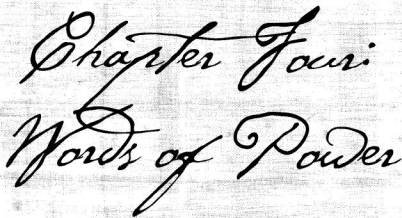 Chapter Four:
Words of Power